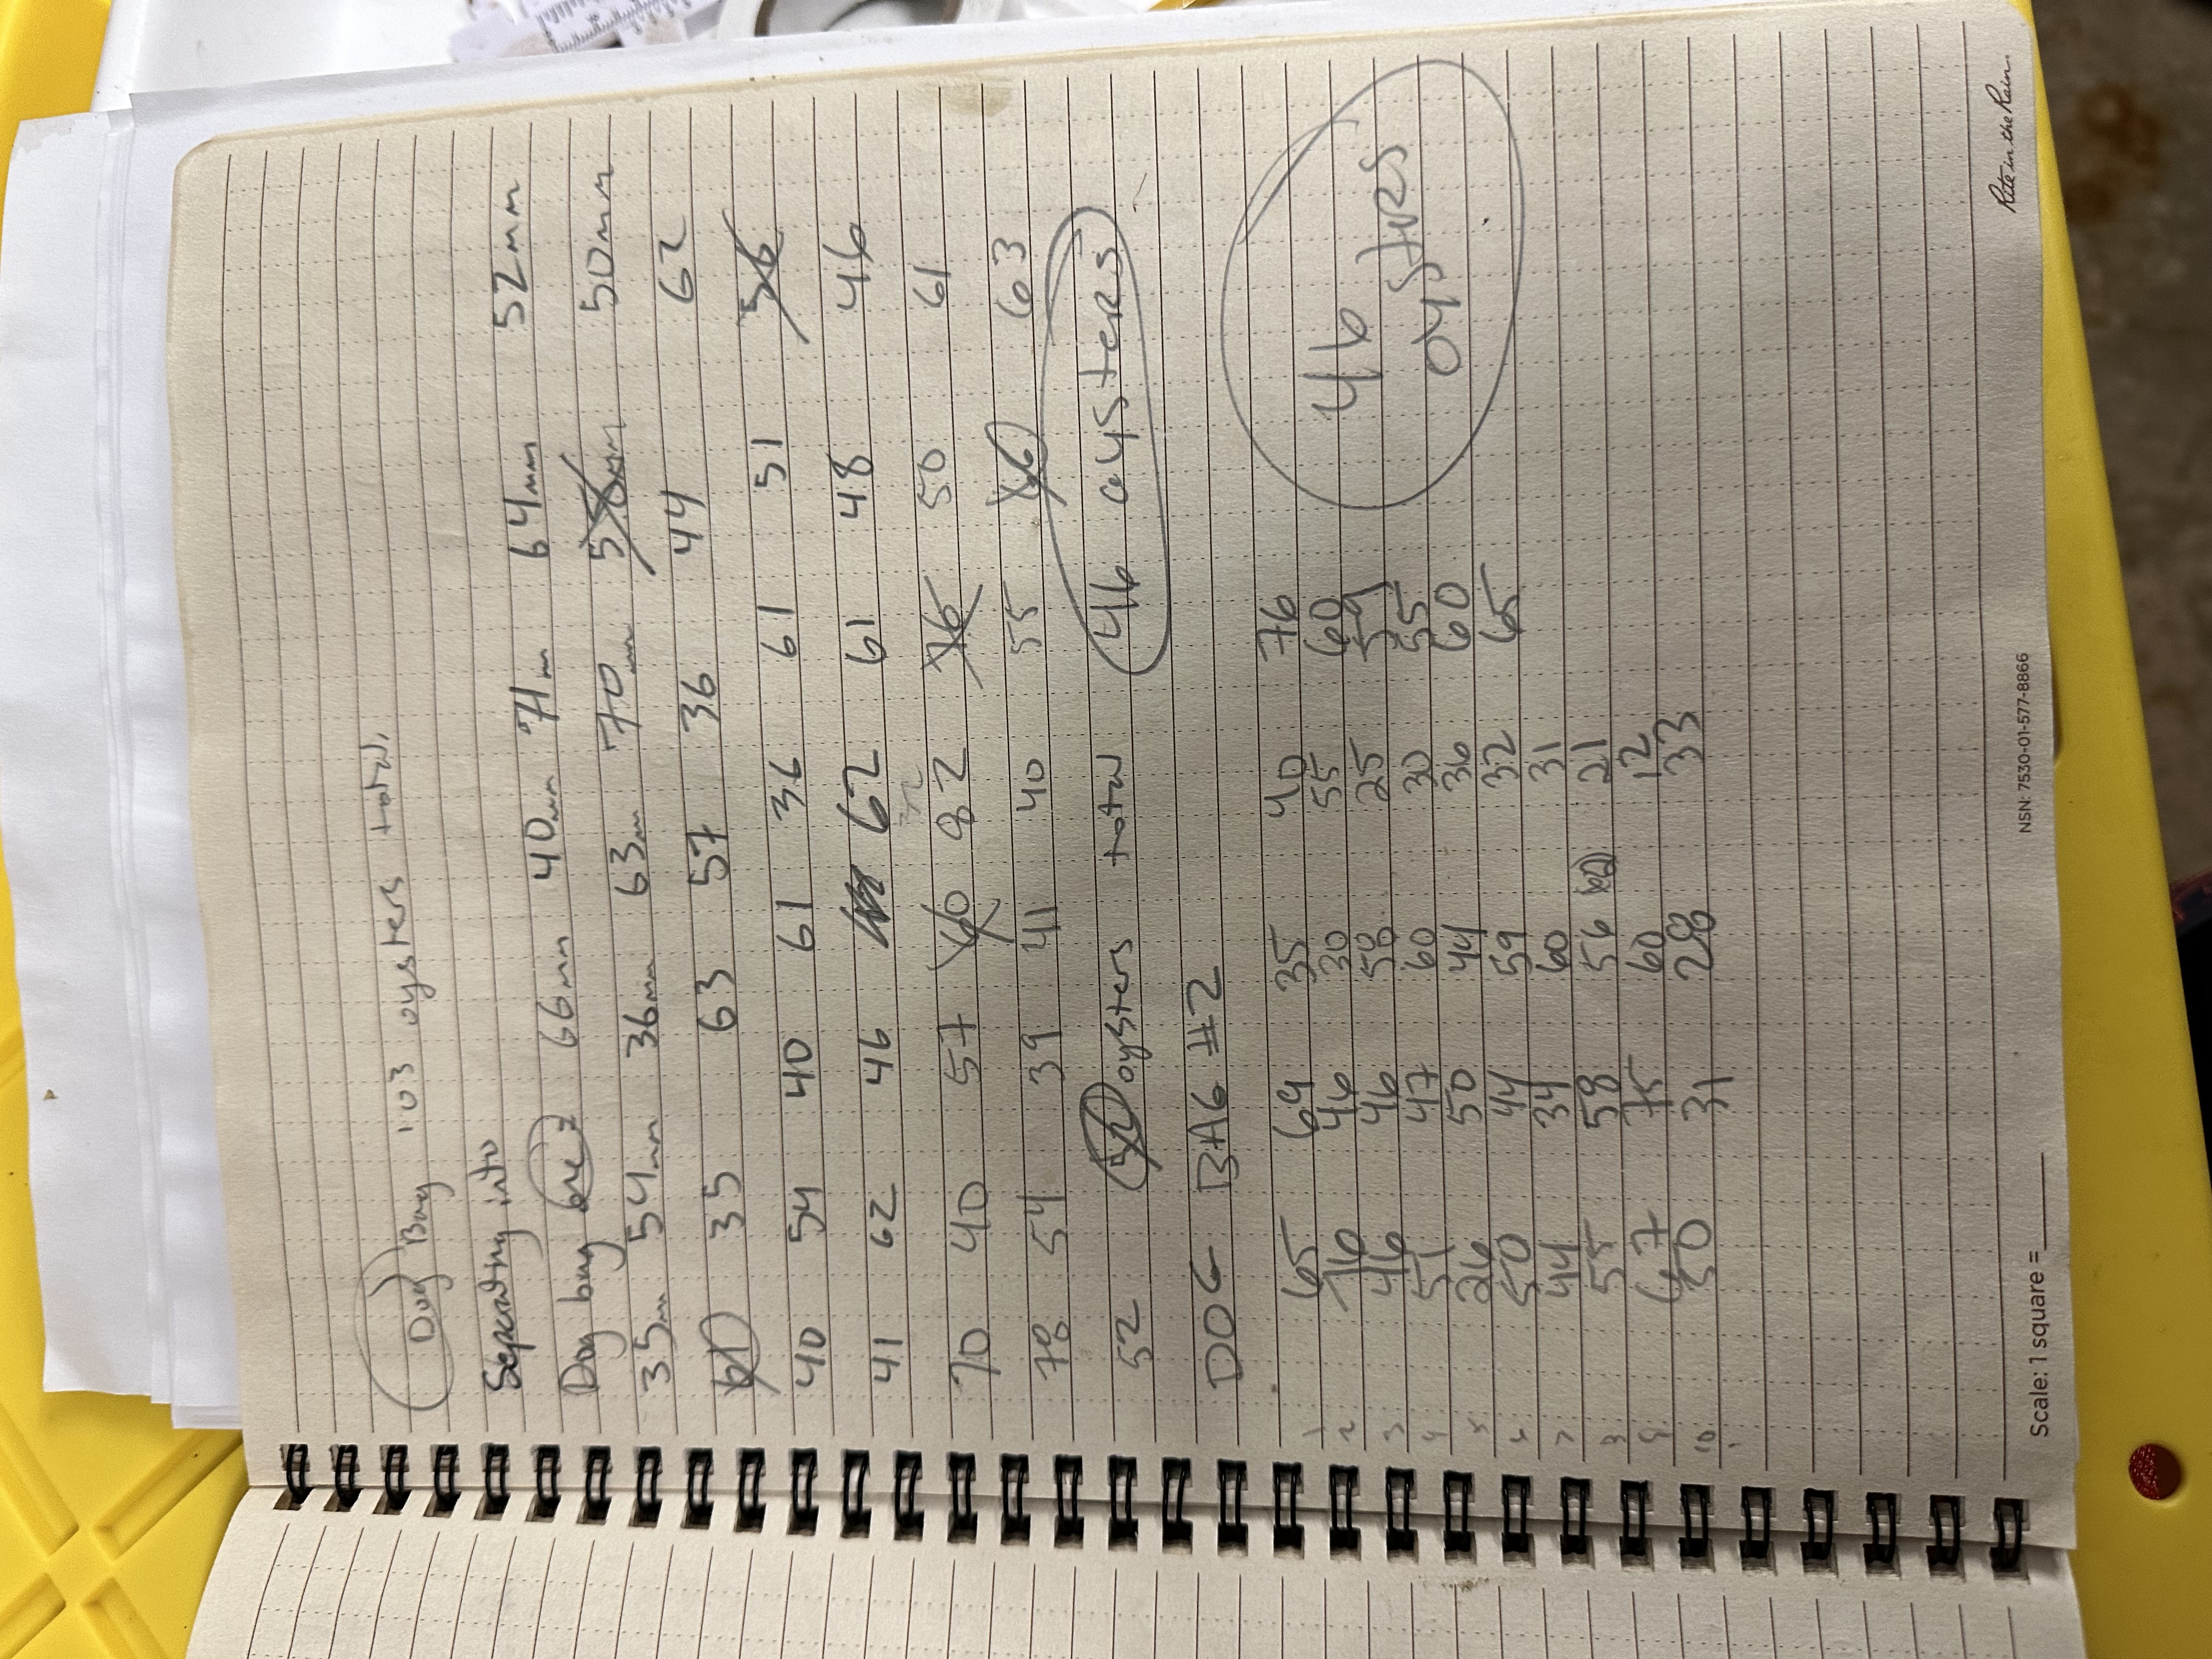 Dog Bag 103 oysters total.
Separating into
Dog bag one = 66mm 40mm 71m 64mm 52mm
35m 54mm 36mm 63m 70mm 58mm 50mm
61 35 63 57 36 44 62
40 54 40 61 36 61 51 56
41 62 46 62 61 48 46
32
70 40 57 60 82 76 50 61
78 54 39 41 40 55 66 63
52 52 oysters total 46 oysters
DOG BAG #2
1 65 69 35 40 76
2 76 46 30 55 60
3 46 46 58 25 59
4 51 47 60 30 55
5 26 50 44 36 60
6 50 44 59 32 65
7 44 34 60 31
8 55 58 56 21
9 67 75 60 12
10 50 31 28 33
46
oysters
Scale: 1 square =
NSN: 7530-01-577-8866
Rite in the Rain.